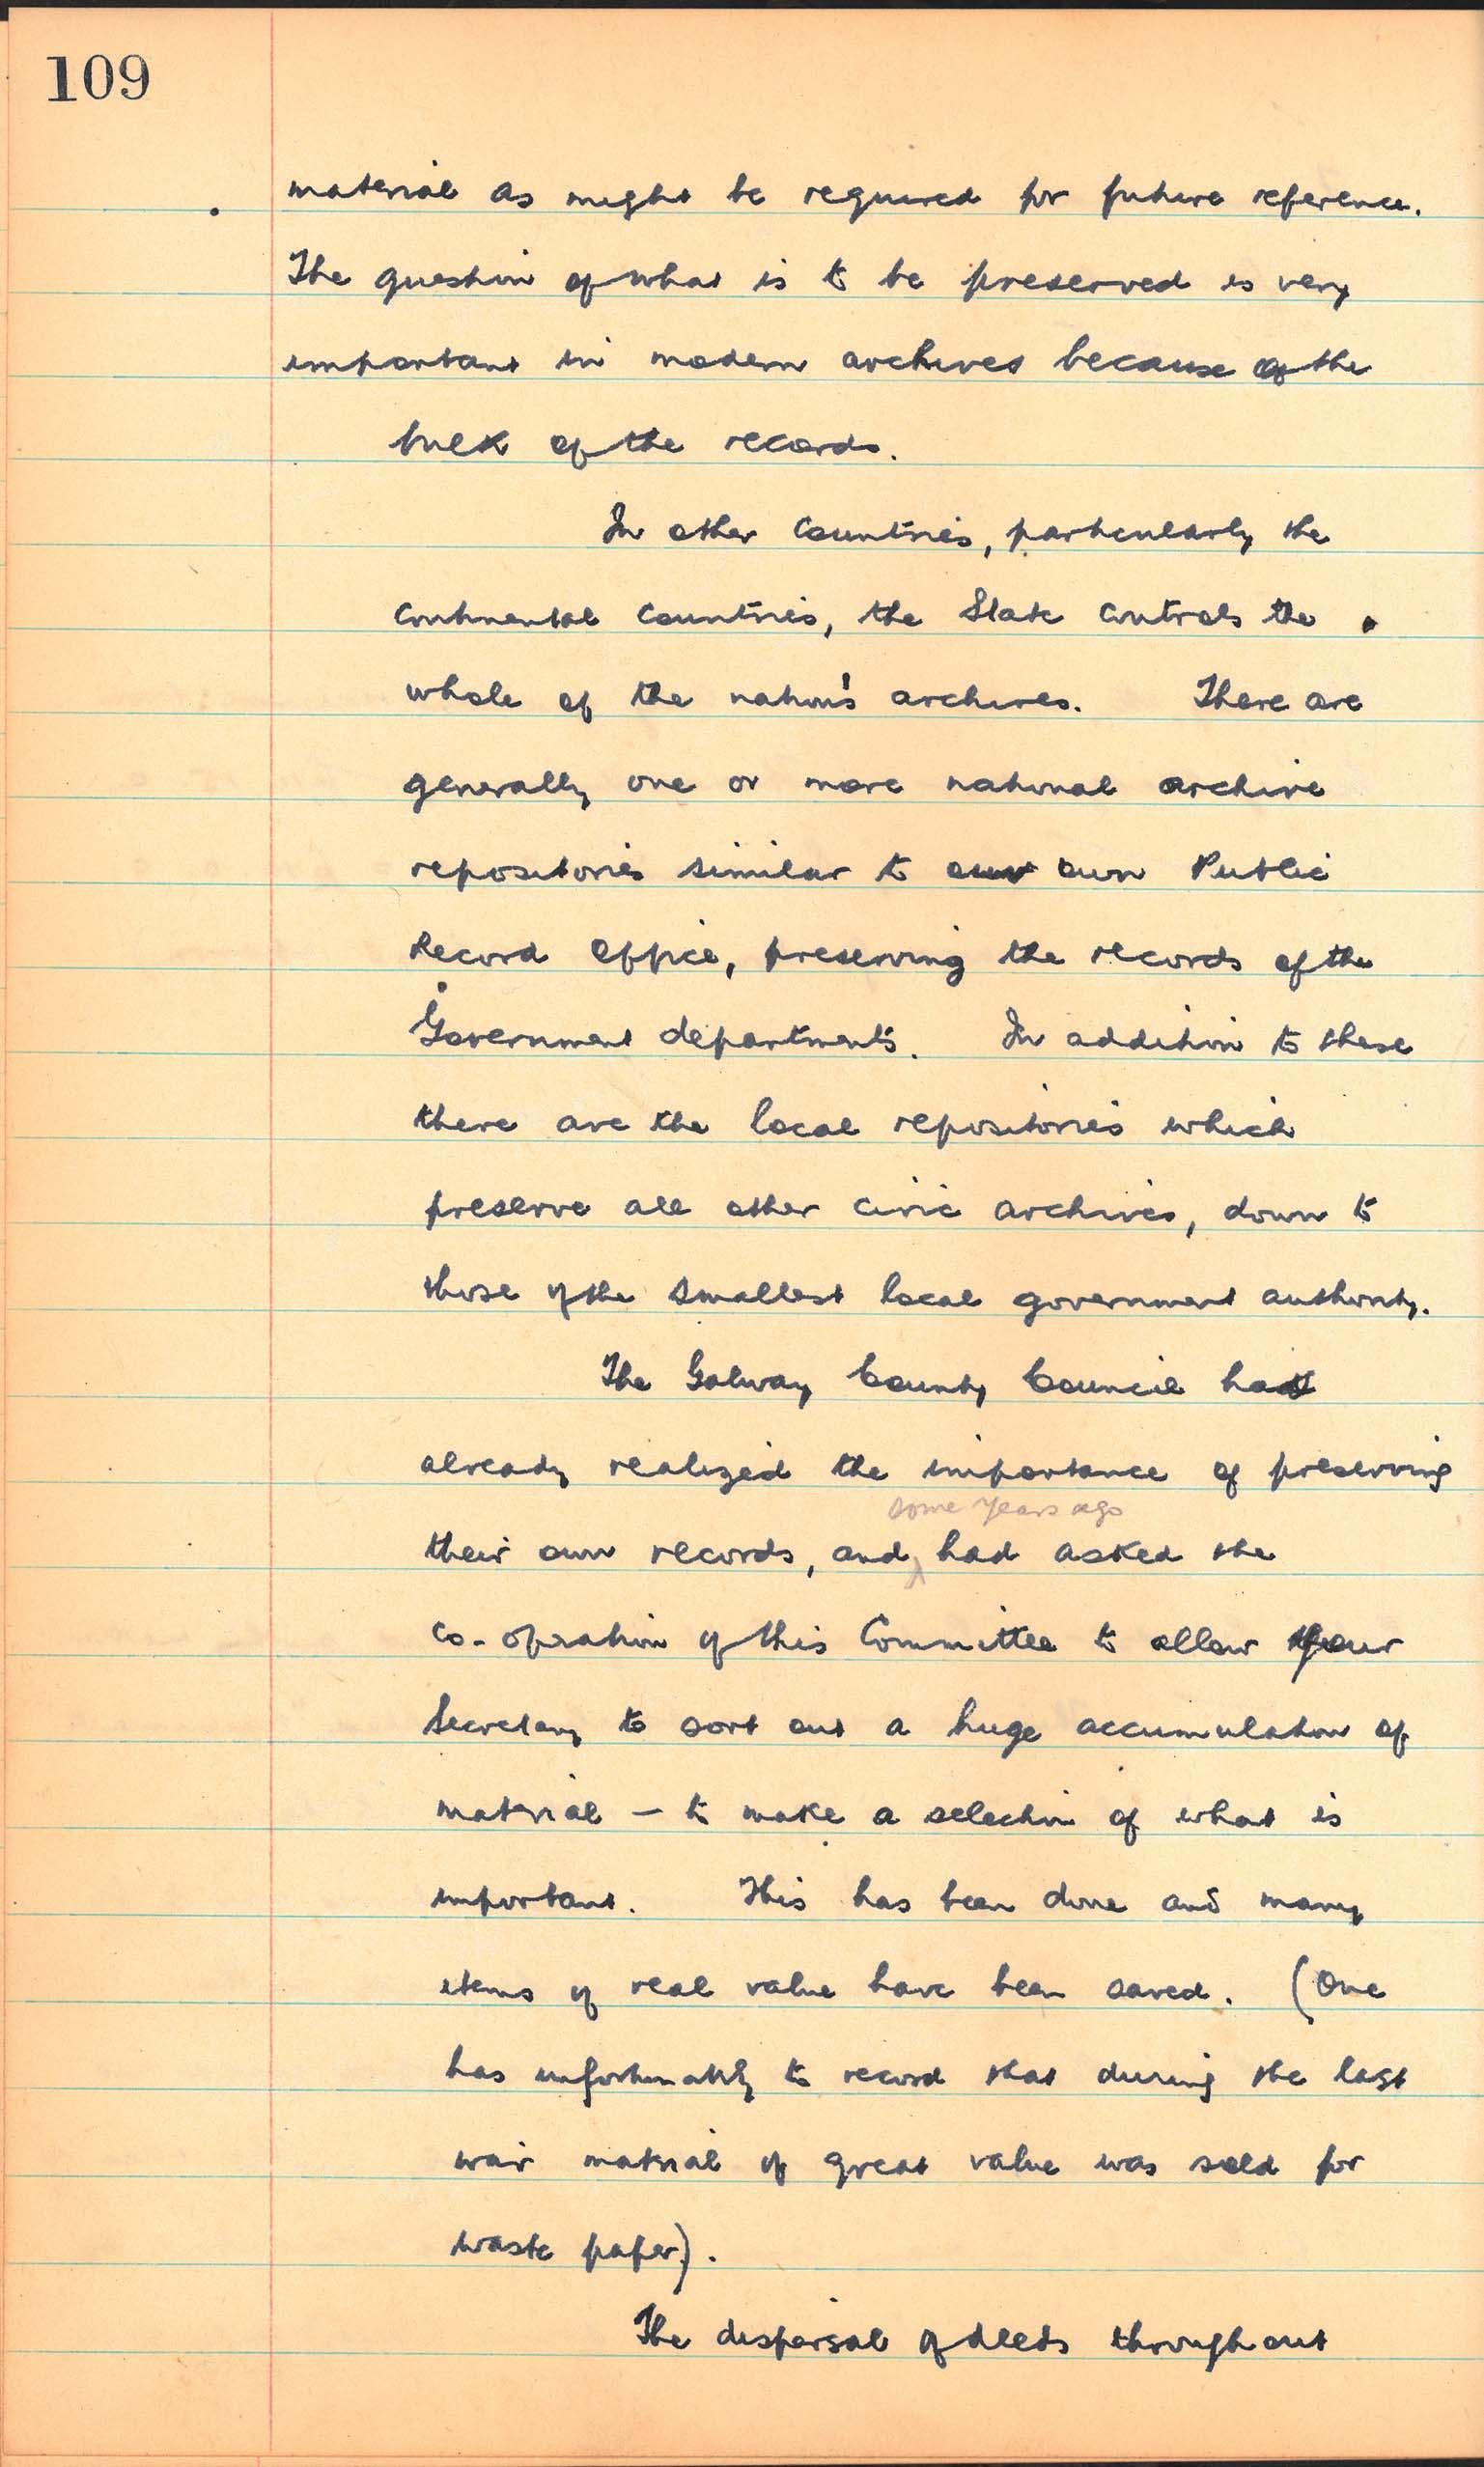 109
material as might be required for future reference.
The question of what is to be preserved is very
important in modern archives because of the
bulk of the records.
In other Countries, particularly the
Continental Countries, the State controls the
whole of the nation's archives. There are
generally one or more national archive
repositories similar to our own Public
Record Office, preserving the records of the
Government departments. In addition to these
there are the local repositories which
preserve all other civic archives, down to
those of the smallest local government authority.
The Galway County Council had
already realized the importance of preserving
some years ago
their own records, and had asked the
co-operation of this Committee to allow your
Secretary to sort out a huge accumulation of
material – to make a selection of what is
important. This has been done and many
items of real value have been saved. (One
has unfortunately to record that during the last
war material of great value was sold for
waste paper).
The dispersal of deeds throughout